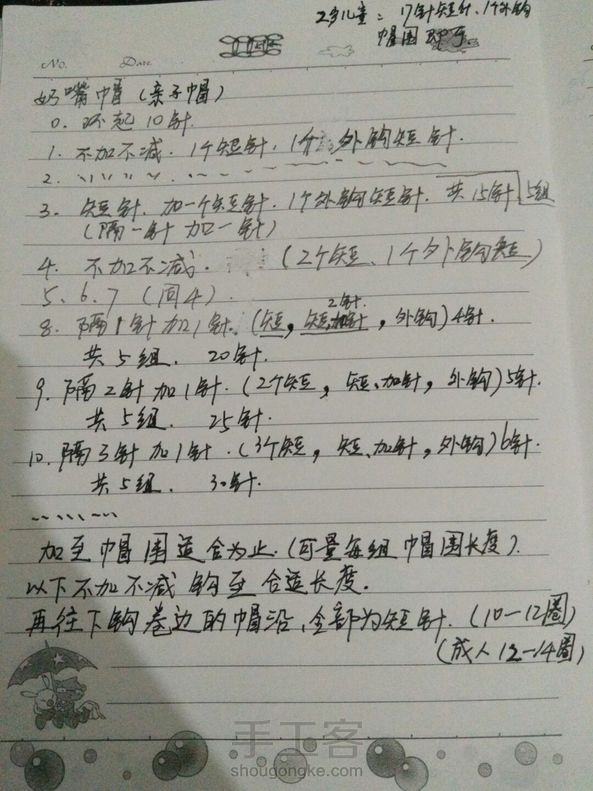 2岁儿童：17针短针、1个外钩
帽围即可
No. Date
奶嘴帽（亲子帽）
0. 环起10针
1. 不加不减. 1个短针. 1个外钩短针.
2. 〃 〃 〃 〃
3. 短针. 加一个短针. 1个外钩短针. 共15针 5组
（隔一针加一针）
4. 不加不减. （2个短、1个外钩短）
5、6、7（同4）.
2针.
8. 隔1针加1针.（短，短、加针，外钩）4针.
共5组. 20针.
9. 隔2针加1针.（2个短，短、加针，外钩）5针.
共5组. 25针.
10. 隔3针加1针.（3个短，短、加针，外钩）6针.
共5组. 30针.
加至帽围适合为止.（可量每组帽围长度）.
以下不加不减钩至合适长度.
再往下钩卷边的帽沿、全部为短针.（10—12圈）
（成人12—14圈）
手工客
shougongke.com